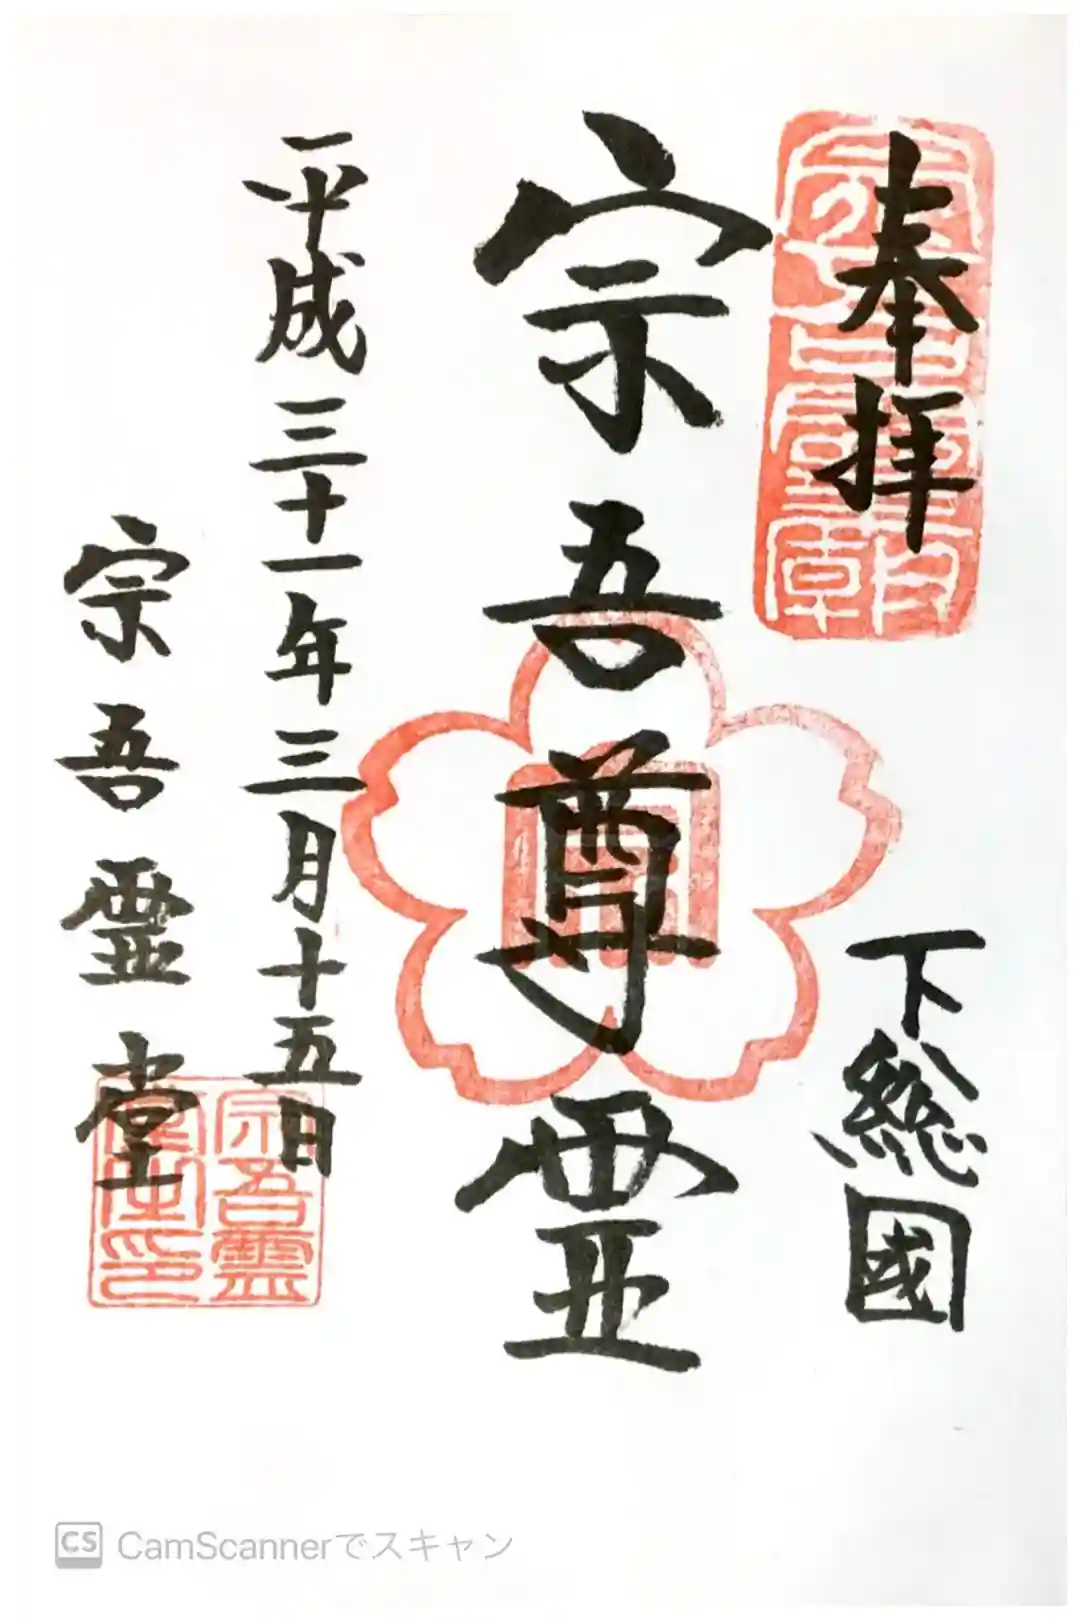 奉拝
下総國
宗吾尊霊
平成三十一年三月十五日
宗吾霊堂
宗吾霊
堂之印
CS CamScannerでスキャン